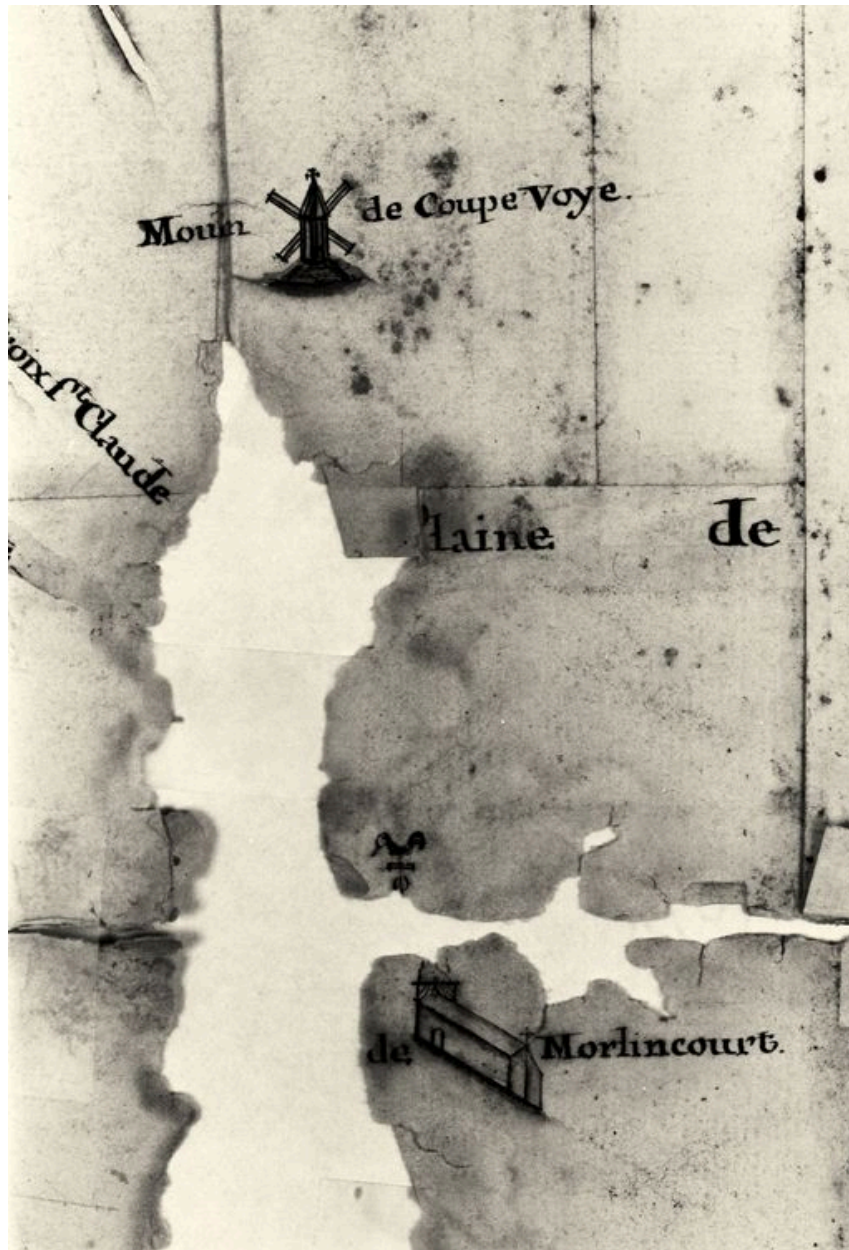 Moulin de Coupe Voye.
oix st Claude
laine de
de Morlincourt.